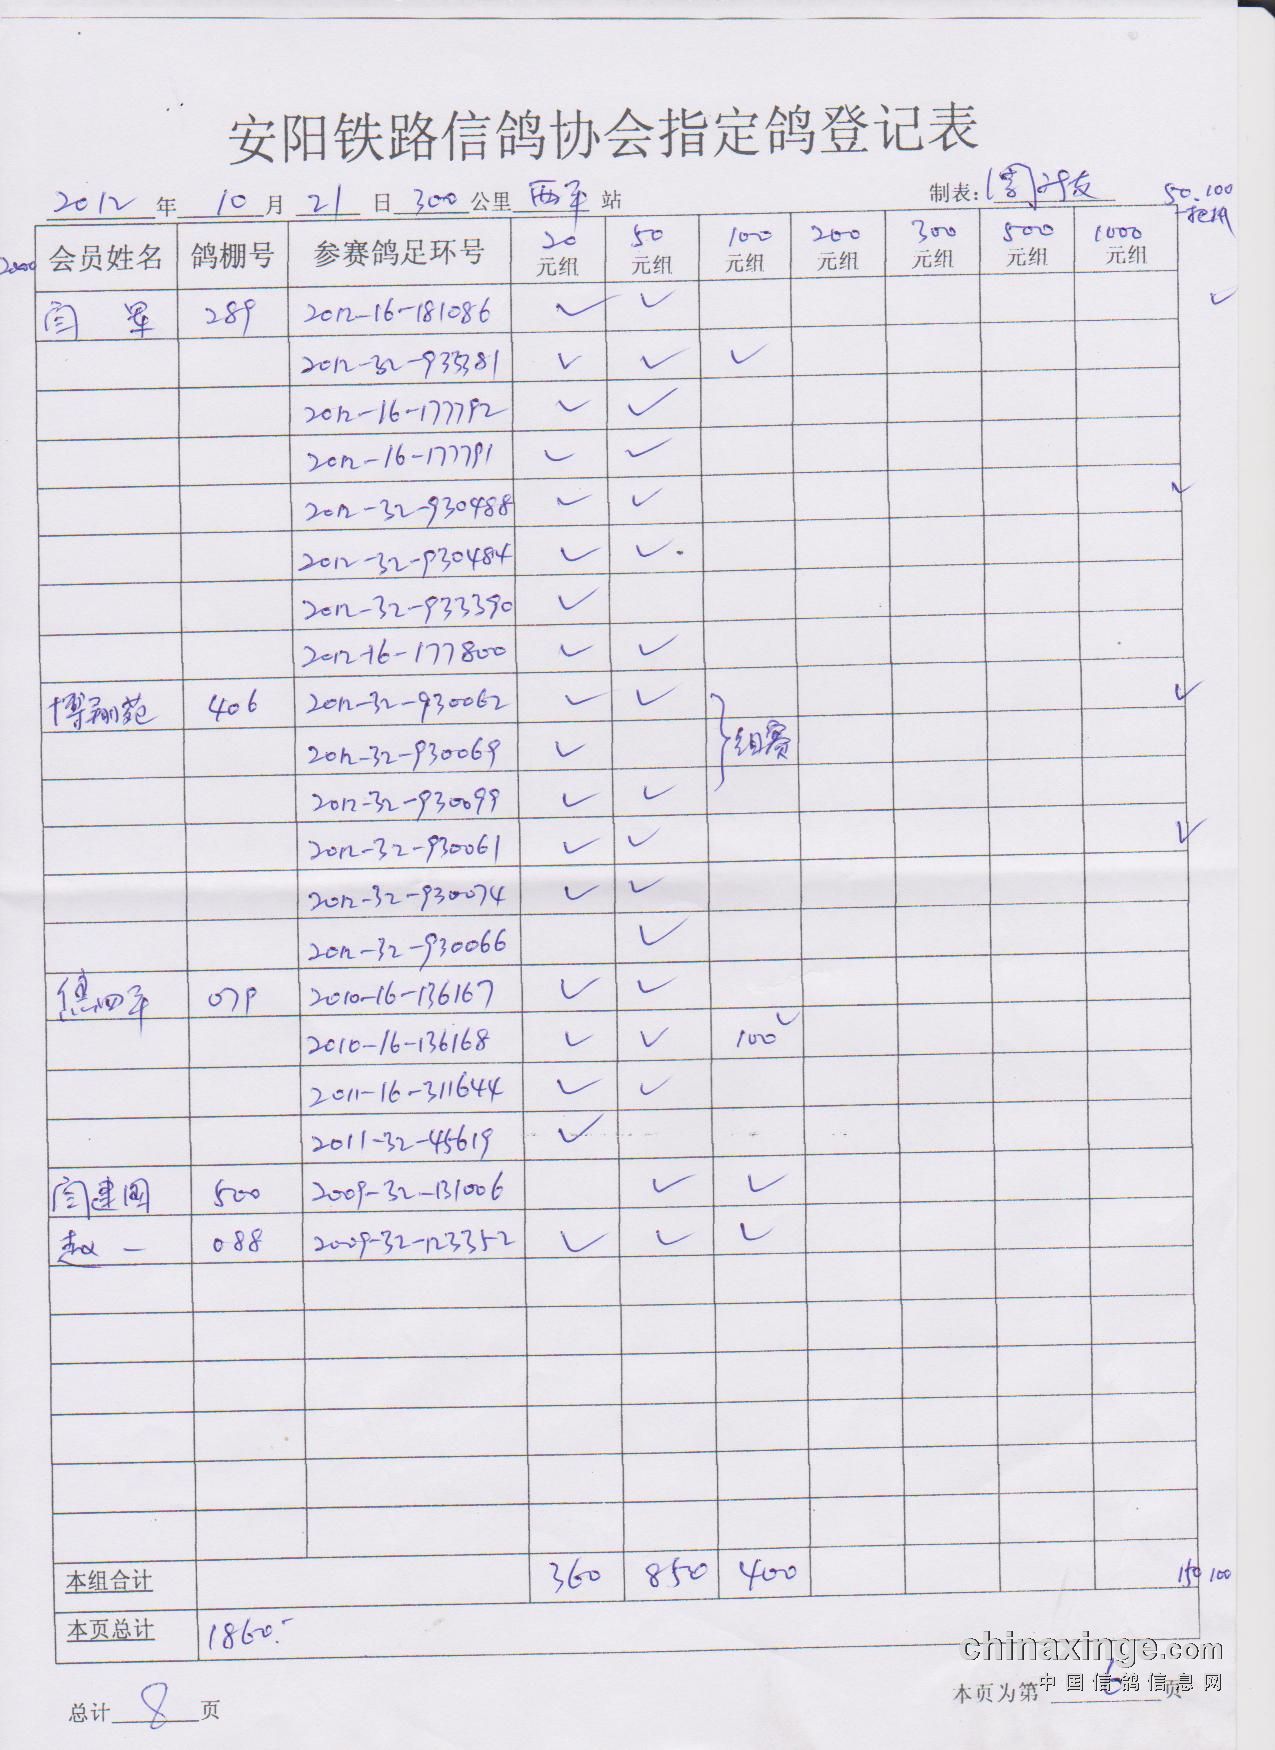 安阳铁路信鸽协会指定鸽登记表
2012 年 10 月 21 日 300 公里 西平 站 制表: 50.100
2000 会员姓名 鸽棚号 参赛鸽足环号 20元组 50元组 100元组 200元组 300元组 500元组 1000元组
闫军 289 2012-16-181086 ✓ ✓ ✓
2012-32-933381 ✓ ✓ ✓
2012-16-177792 ✓ ✓
2012-16-177791 ✓ ✓
2012-32-930488 ✓ ✓ ✓
2012-32-930484 ✓ ✓
2012-32-933390 ✓
2012-16-177800 ✓ ✓
博翔苑 406 2012-32-930062 ✓ ✓ ✓
2012-32-930069 ✓ 组赛
2012-32-930099 ✓ ✓
2012-32-930061 ✓ ✓ ✓
2012-32-930074 ✓ ✓
2012-32-930066 ✓
079 2010-16-136167 ✓ ✓
2010-16-136168 ✓ ✓ 100 ✓
2011-16-311644 ✓ ✓
2011-32-45619 ✓
闫建国 500 2009-32-131006 ✓ ✓
赵一 088 2009-32-123352 ✓ ✓ ✓
本组合计 360 850 400 150 100
本页总计 1860.-
chinaxinge.com
中国信鸽信息网
总计 8 页 本页为第 6 页